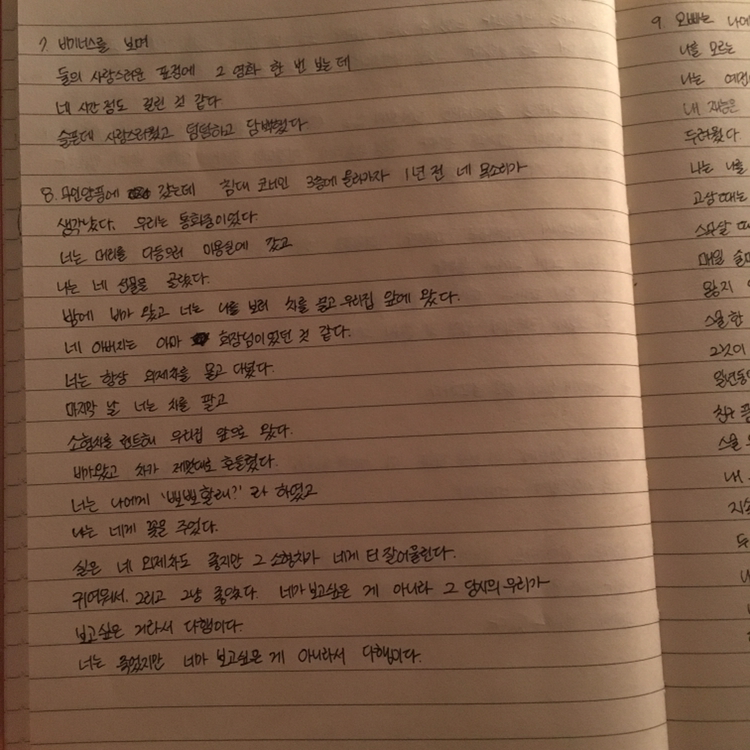 7. 비기너스를 보며
둘의 사랑스러운 표정에 그 영화 한 번 보는데
네 시간 정도 걸린 것 같다
슬픈데 사랑스러웠고 덤덤하고 담백했다
8. 무인양품에 갔는데 침대 코너인 3층에 올라가자 1년 전 네 목소리가
생각났다. 우리는 통화중이었다.
너는 머리를 다듬으러 미용실에 갔고
나는 네 선물을 골랐다.
밤에 비가 왔고 너는 나를 보러 차를 끌고 우리집 앞에 왔다.
네 아버지는 아마 회장님이었던 것 같다.
너는 항상 외제차를 몰고 다녔다.
마지막 날 너는 차를 팔고
소형차를 렌트해 우리집 앞으로 왔다.
비가 왔고 차가 제멋대로 흔들렸다.
너는 나에게 '뽀뽀할래?' 라 하였고
나는 네게 꽃을 주었다.
실은 네 외제차도 좋지만 그 소형차가 네게 더 잘어울린다.
귀여워서. 그리고 그냥 좋았다. 네가 보고싶은 게 아니라 그 당시의 우리가
보고싶은 거라서 다행이다.
너는 죽었지만 너가 보고싶은 게 아니라서 다행이다.
9. 오빠는 나에
나를 모르는
나는
내
두려웠다
나는 나를
고삼때는
매일
왕지
스물 한
그것이
일년동
친구
스물
내
지속
두